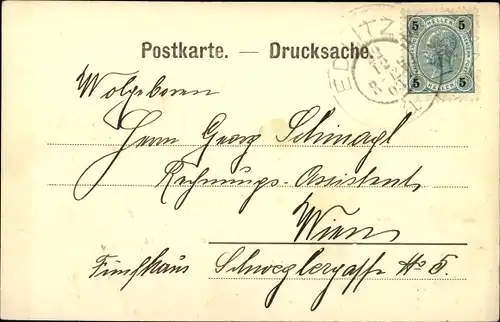 Postkarte. — Drucksache.
5 HELLER 5
5 HELLER 5
Wolgeboren
Herrn Georg Schinagl
Rechnungs-Assistent
Wien
Fünfhaus Schweglergasse No 5.